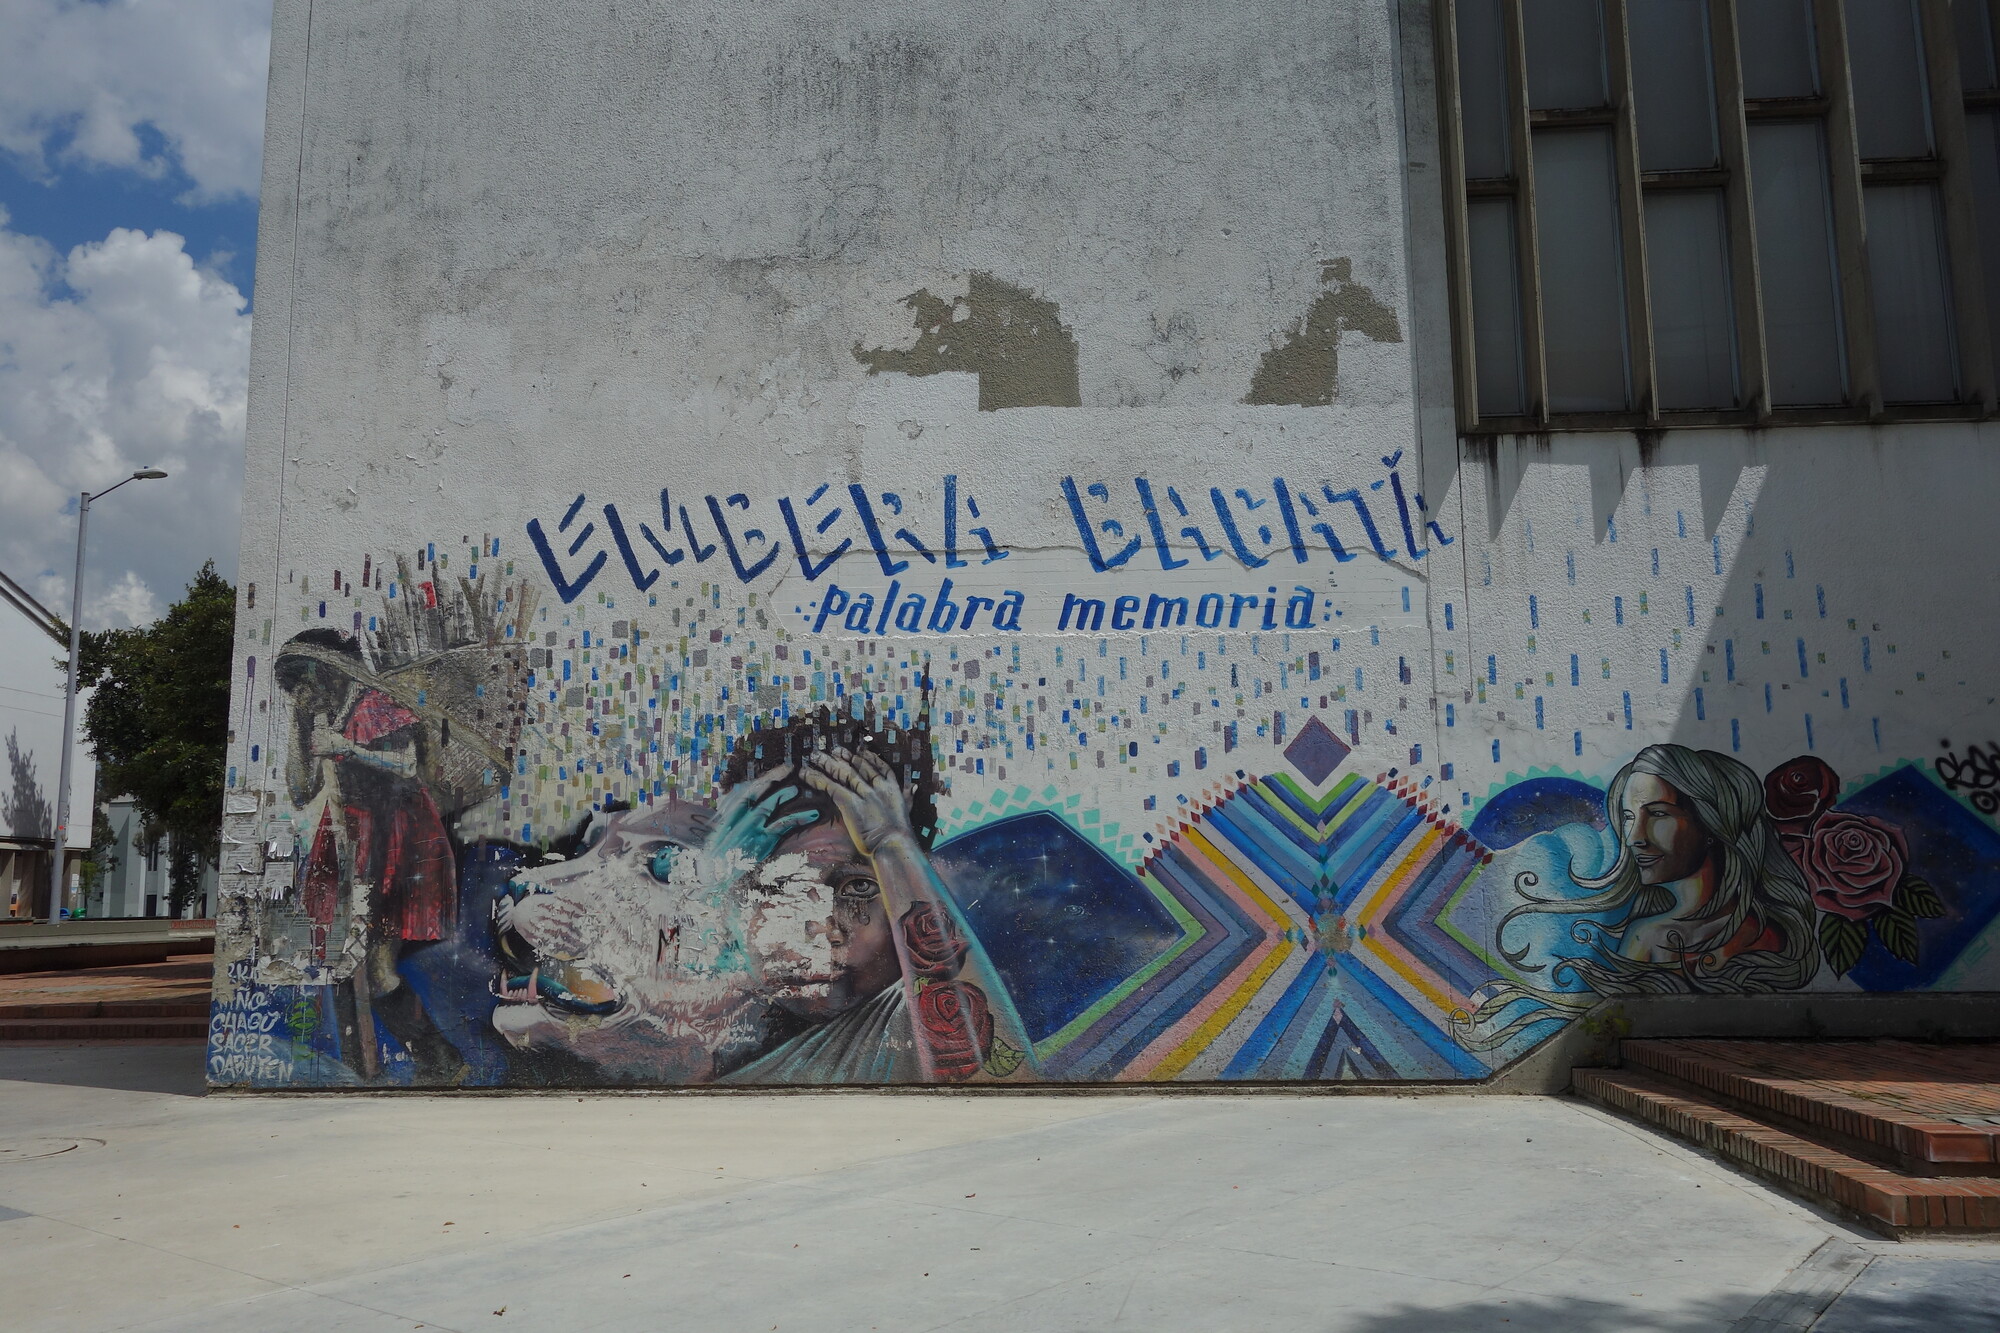 EMBERA BAGATÁ
palabra memoria
INO
CHAGÜ
SACER
DABUTEN